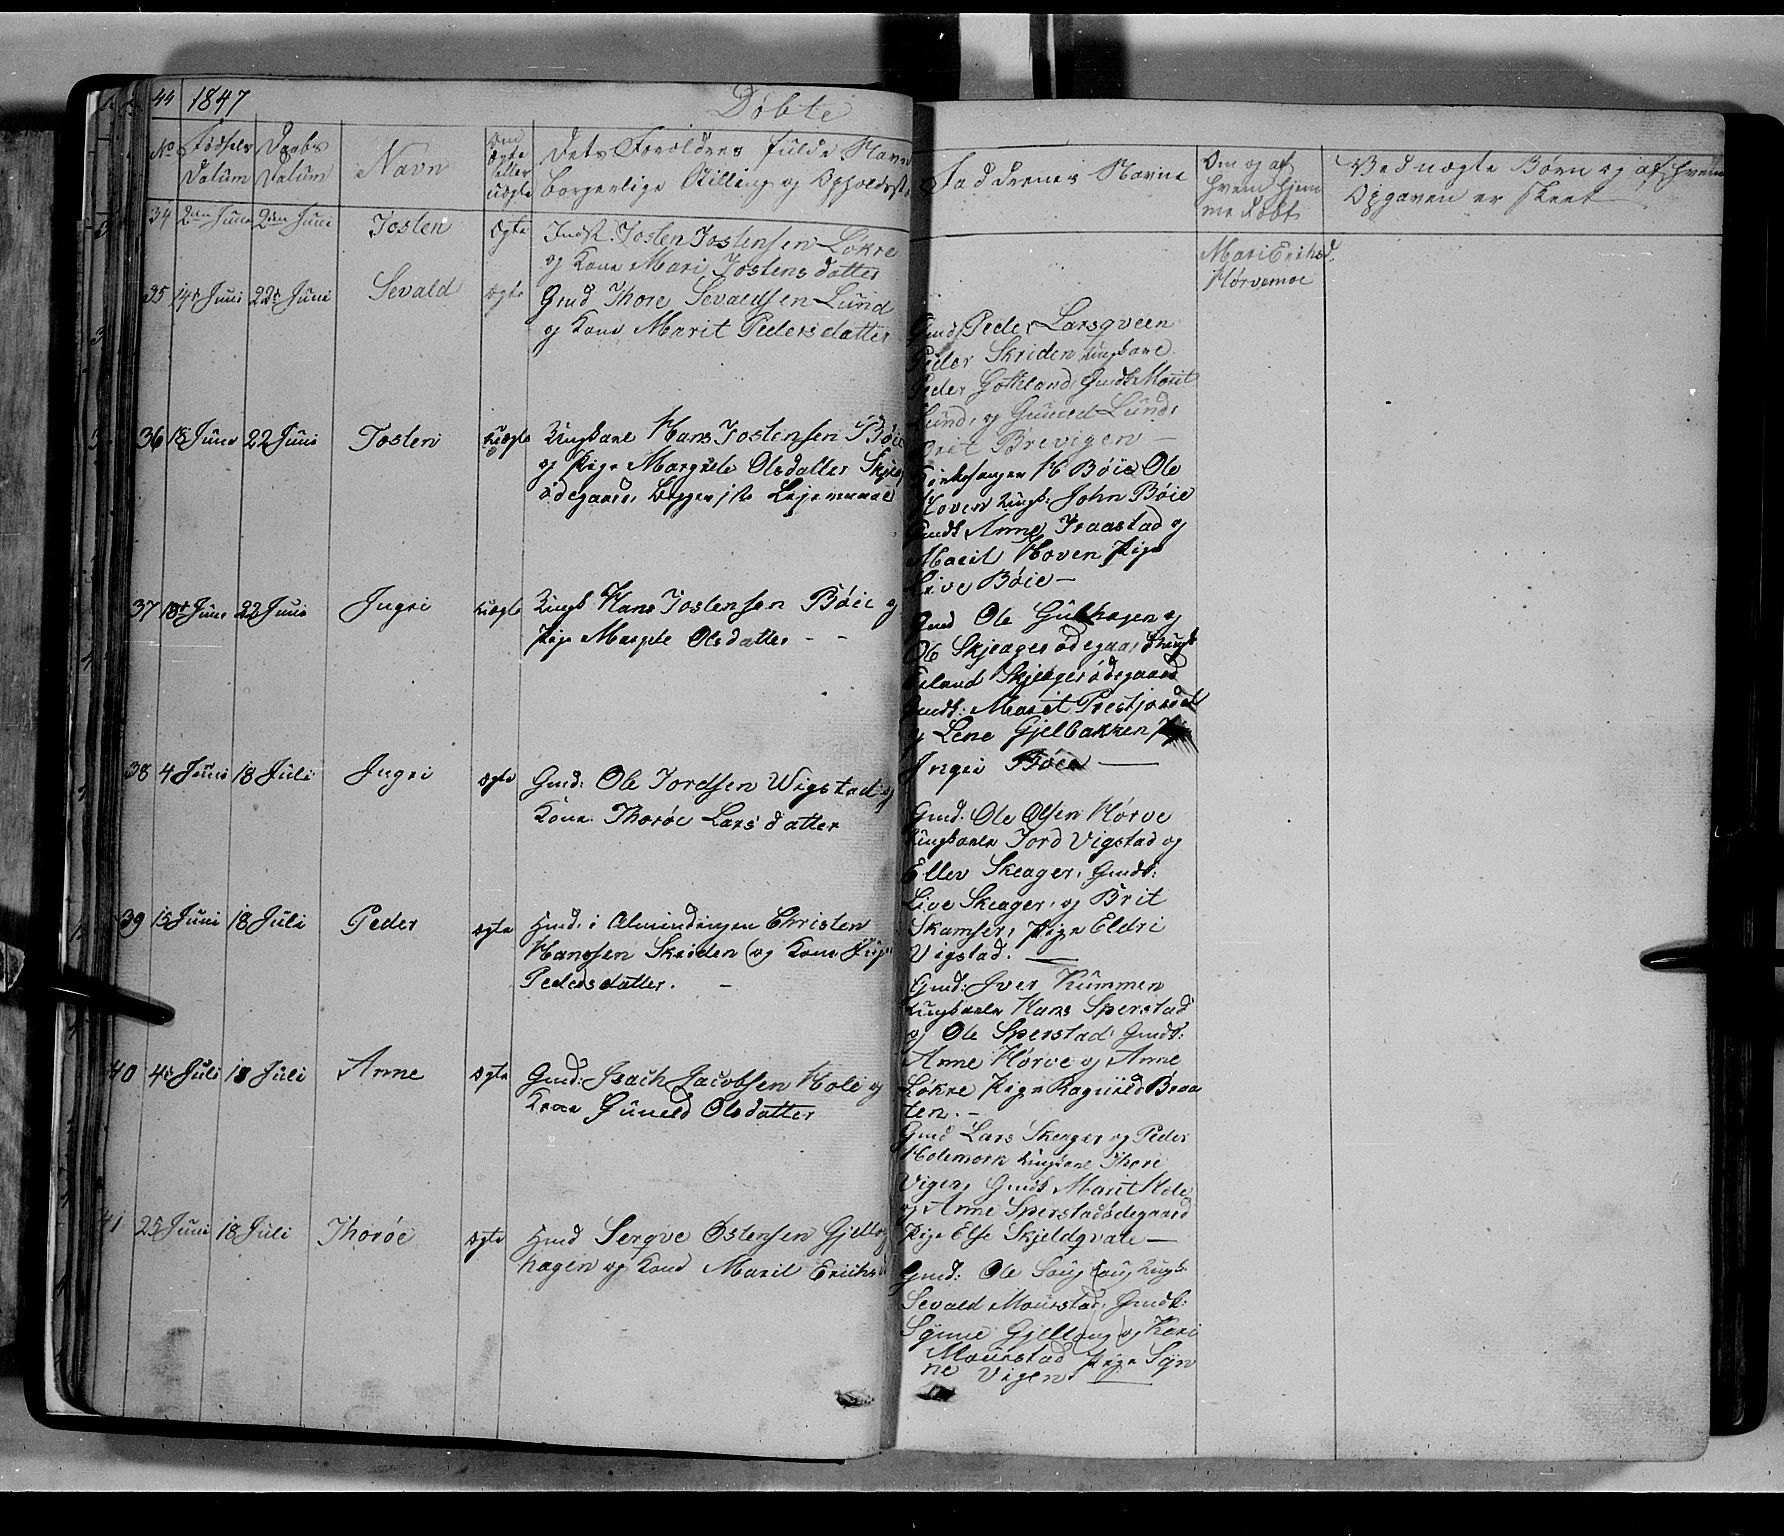 44 1847 Döbte
No Fødsels Datum Daabs Datum Navn Om Ægte eller uægte Dets Forældres fulde Navn borgerlige Stilling og Opholdsst
Faddernes Navne Om og af hvem hjemmedøbt Ved uægte Børn og af hvem Opgaven er skeet
34 2den Juni 2den Juni Josten ægte Indst. Josten Jostensen Løkre
og Kone Mari Jostensdatter
Mari Eriksd.
Hørvemoe
35 14de Juni 22de Juni Sevald ægte Gmd Thore Sevaldsen Lund
og Kone Marit Pedersdatter
Gmd Peder Larsqveen
Peder Skriden Ungkarle
Peder Gothland, Gmdk Marit
Lund, og Guneld Lund,
Brit Brevigen —
36 18 Juni 22 Juni Josten uægte Ungkarl Hans Jostensen Böie
og Pige Margrete Olsdatter Skjeager
ødegaard, begges 1ste Leiermaal
Kirkesanger H Böie Ole
Hoven Ungk: John Böie
Gmdk Anne Traastad og
Marit Hoven Pige
Live Böie —
37 18de Juni 22 Juni Ingri uægte Ungk Hans Jostensen Böie og
Pige Margrete Olsdatter - -
Gmd Ole Gulhagen og
Ole Skjeagerødegaard Ungk
Erland Skjeagerødegaard
Gmdk: Marit Prestjordet
og Lene Gjelbakken Pige
Ingri Böie —
38 4 Juni 18 Juli Ingri ægte Gmd: Ole Jordsen Wigstad og
Kone Thoröe Larsdatter
Gmd: Ole Olsen Hörve
Ungkarle Jord Vigstad og
Ellev Skeager, Gmdk:
Live Skeager, og Brit
Skamser, Pige Eldri
Vigstad. —
39 15 Juni 18 Juli Peder ægte Hmd: i Almindingen Christen
Hanssen Skriden og Kone
Pedersdatter. -
Gmd: Iver Kummen
Ungkarle Hans Sperstad
og Ole Sperstad Gmdk:
Anne Hörve og Anne
Løkre Pige Ragnild Braa
ten. -
40 4de Juli 18 Juli Anne ægte Gmd: Isach Jacobsen Hole og
Kone Guneld Olsdatter
Gmd Lars Skeager og Peder
Holemork Ungkarl Thore
Vigen, Gmdk Marit Hole
og Anne Sperstadødegaard
Pige Else Skjeldqvale —
41 25 Juni 18 Juli Thoröe ægte Hmd Serqve Østensen Gjellog
hagen og Kone Marit Eriksd
Gmd: Ole Ungk:
Sevald Mourstad, Gmdk:
Synne og Kari
Mourstad Pige Syn
ne Vigen —